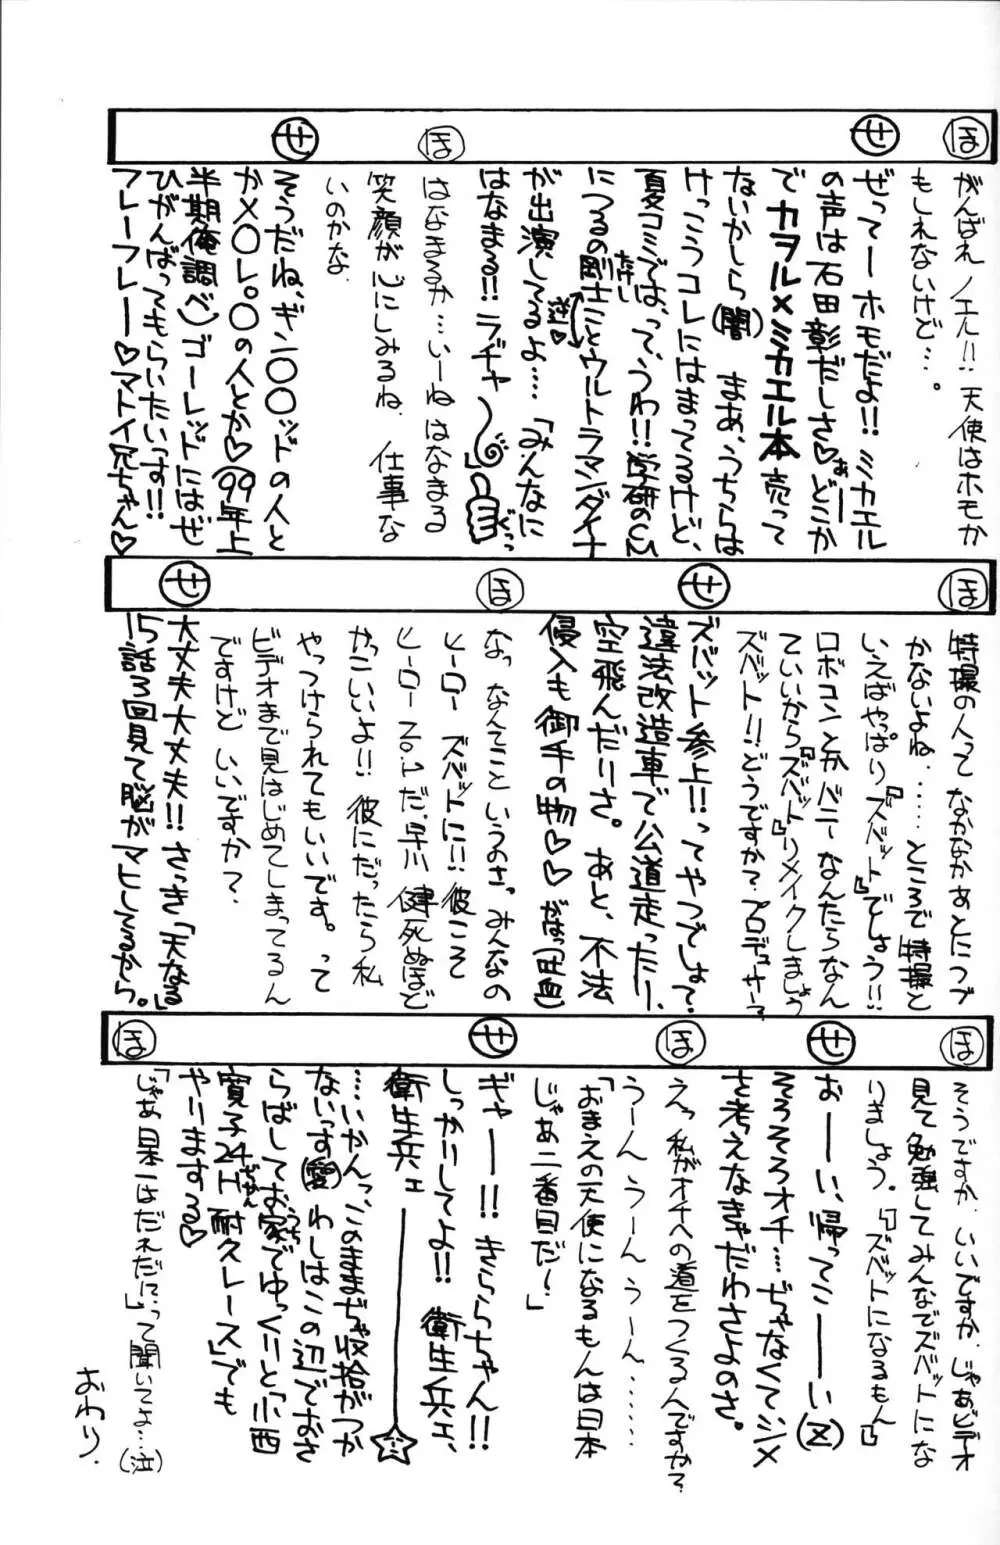 ほ
がんばれノエル!!天使はホモか
もしれないけど…。
せ
ぜってーホモだよ!!ミカエル
の声は石田彰だしさ♡あーどこか
でカヲル×ミカエル本売って
ないかしら(闇)まあ、うちらは
けっこうコレにはまってるけど、
夏コミではって、うわ!!学研のCM
につるの剛士ことウルトラマンダイナ
たけし
逆
が出演してるよ……「みんなに
はなまる!!ラヂャー」
ぐっっ
ほ
はなまるか…いーねはなまる
笑顔が心にしみるね、仕事な
いのかな
せ
そうだね、ギン〇〇〇ッドの人と
か×〇レ〇〇の人とか♡(99年上
半期俺調べ)ゴーレッドにはぜ
ひがんばってもらいたいっす!!
フレーフレー♡マトイ兄ちゃん♡
ほ
特撮の人ってなかなかあとにつづ
かないよね……ところで特撮と
いえばやっぱり『ズバット』でしょう!!
ロボコンとかバニーなんたらなん
ていいから『ズバット』リメイクしましょう
ズバット!!どうですか?プロデューサー?
せ
ズバット参上!!ってやつでしょ?
違法改造車で公道走ったり、
空飛んだりさ。あと、不法
侵入も御手の物♡♡がはっ(吐血)
ほ
なっなんてこというのさっみんなの
ヒーローズバットに!!彼こそ
ヒーローNo.1だ、早川健死ぬほど
かっこいいよ!!彼にだったら私
やっつけられてもいいです。って
ビデオまで見はじめてしまってるん
ですけどいいですか?
せ
大丈夫大丈夫!!さっき「天なる」
15話3回見て脳がマヒしてるから。
ほ
そうですか、いいですか、じゃあビデオ
見て勉強してみんなでズバットにな
りましょう。『「ズバットになるもん」』
せ
おーい、帰ってこーい(Z)
そろそろオチ…ぢゃなくてシメ
を考えなきゃだわさよのさ。
ほ
えっ私がオチへの道をつくる人ですか?
うーんうーんうーん……
「おまえの天使になるもんは日本
じゃあ二番目だ!」
せ
ギャーー!!きららちゃん!!
しっかりしてよ!!衛生兵ェ、
衛生兵ェ―――☆
……いかんっ、このままぢゃ収拾がつか
ないっす(愛)わしはこの辺でおさ
らばしてお家でゆっくりと「小西
寛子24Hぢかん耐久レース」でも
やりまする♡
ほ
「じゃあ日本一はだれだい」って聞いてよ…(泣)
おわり.